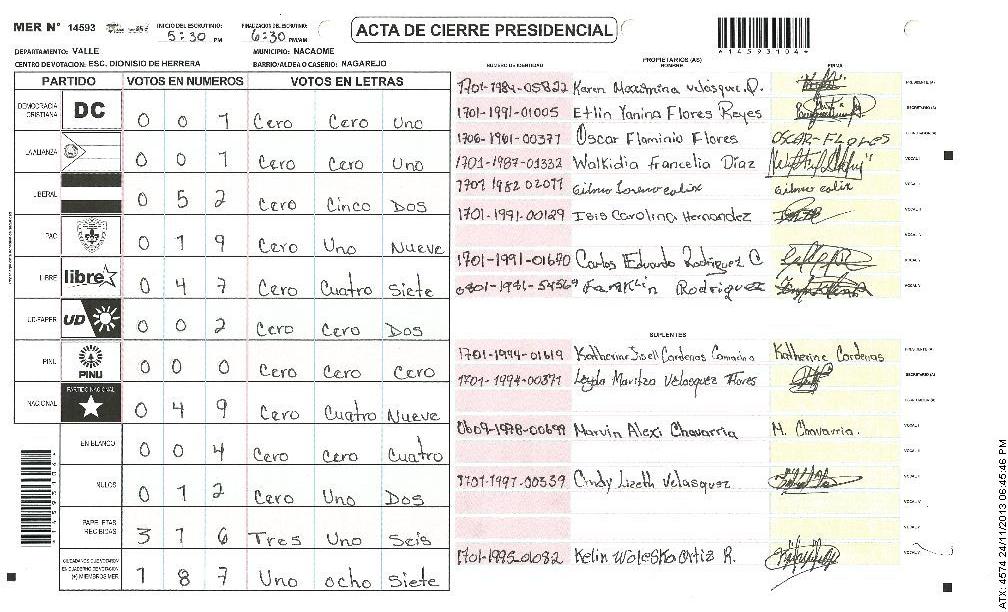 MER N° 14593
INICIO DEL ESCRUTINIO: 5:30 PM
FINALIZACION DEL ESCRUTINIO: 6:30 PM/AM
ACTA DE CIERRE PRESIDENCIAL
*14593104*
DEPARTAMENTO: VALLE
MUNICIPIO: NACAOME
CENTRO DE VOTACION: ESC. DIONISIO DE HERRERA
BARRIO/ALDEA O CASERIO: NAGAREJO
PARTIDO VOTOS EN NUMEROS VOTOS EN LETRAS
DEMOCRACIA CRISTIANA DC 0 0 1 Cero Cero Uno
LA ALIANZA 0 0 1 Cero Cero Uno
LIBERAL 0 5 2 Cero Cinco Dos
PAC 0 1 9 Cero Uno Nueve
LIBRE libre 0 4 7 Cero Cuatro Siete
UD-FAPER UD 0 0 2 Cero Cero Dos
PINU PINU 0 0 0 Cero Cero Cero
NACIONAL PARTIDO NACIONAL 0 4 9 Cero Cuatro Nueve
EN BLANCO 0 0 4 Cero Cero Cuatro
NULOS 0 1 2 Cero Uno Dos
PAPELETAS RECIBIDAS 3 1 6 Tres Uno Seis
CIUDADANOS QUE VOTARON EN CUADERNO DE VOTACION (+) MIEMBROS MER 1 8 7 Uno ocho Siete
PROPIETARIOS (AS)
NUMERO DE IDENTIDAD NOMBRE FIRMA
1701-1984-05822 Karen Maximina Velásquez O. PRESIDENTE (A)
1701-1991-01005 Etlin Yanina Flores Reyes SECRETARIO (A)
1706-1961-00371 Oscar Flaminio Flores OSCAR-FLORES
1701-1987-01332 Walkidia Francelia Díaz VOCAL I
1701 1982 02077 Gilma Lorena calix Gilma calix
1701-1991-00129 Isis Carolina Hernandez
1701-1991-01690 Carlos Eduardo Rodriguez C
Rodriguez
SUPLENTES
1701-1994-01619 Katherine Jisell Cardenas Camacho Katherine Cardenas PRESIDENTE (A)
1701-1994-00371 Leyda Maritza Velasquez Flores SECRETARIO (A)
0609-1978-00699 Marvin Alexi Chavarria M. Chavarria.
1701-1997-00339 Cindy Lizeth Velasquez
1701-1995-01082 Kelin Waleska Ortiz R.
*14593104*
ATX: 4574 24/11/2013 06:45:46 PM